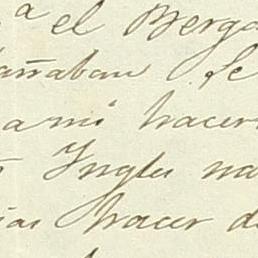 a el Berga
añaban se
ami hacer
Yngles na
ias hacer d